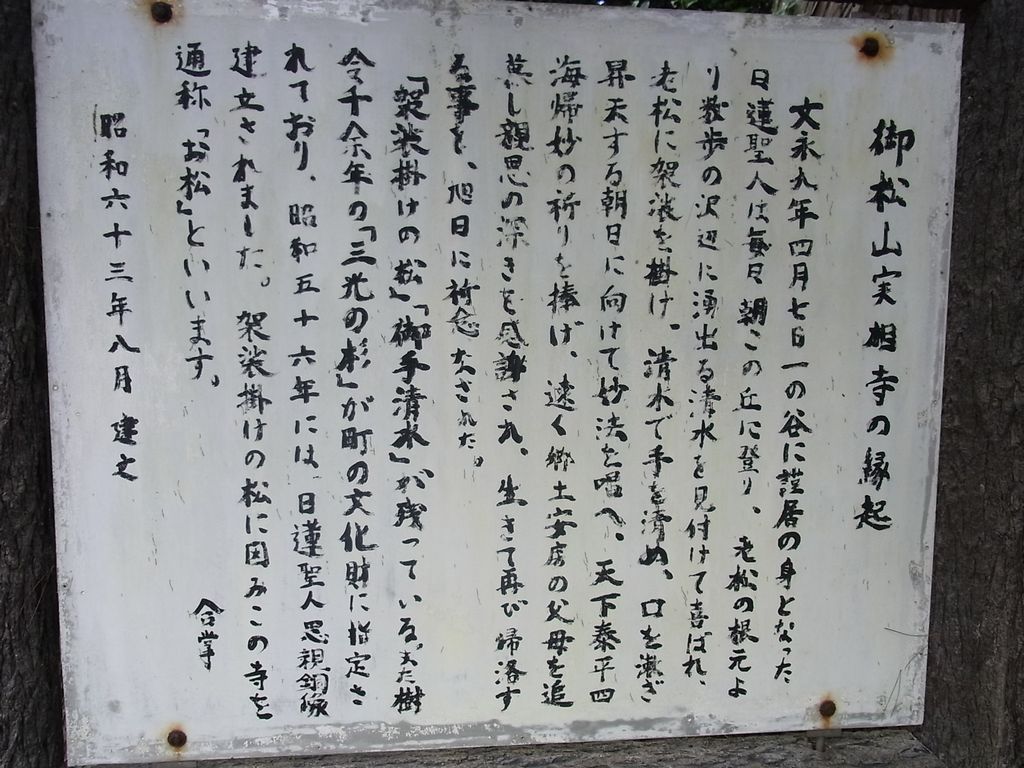 御松山実相寺の縁起
文永九年四月七日一の谷に謹居の身となった
日蓮聖人は毎日朝この丘に登り、老松の根元よ
り数歩の沢辺に湧出る清水を見付けて喜ばれ、
老松に袈裟を掛け、清水で手を清め、口を漱ぎ
昇天する朝日に向けて妙法を唱へ、天下泰平四
海帰妙の祈りを捧げ、遠く郷土安房の父母を追
慕し親恩の深きを感謝され、生きて再び帰洛す
る事を、旭日に祈念なされた。
「袈裟掛けの松」「御手清水」が残っている。また樹
令千余年の「三光の杉」が町の文化財に指定さ
れており、昭和五十六年には、日蓮聖人思親銅像
建立されました。袈裟掛けの松に因みこの寺を
通称「お松」といいます。
合掌
昭和六十三年八月 建之